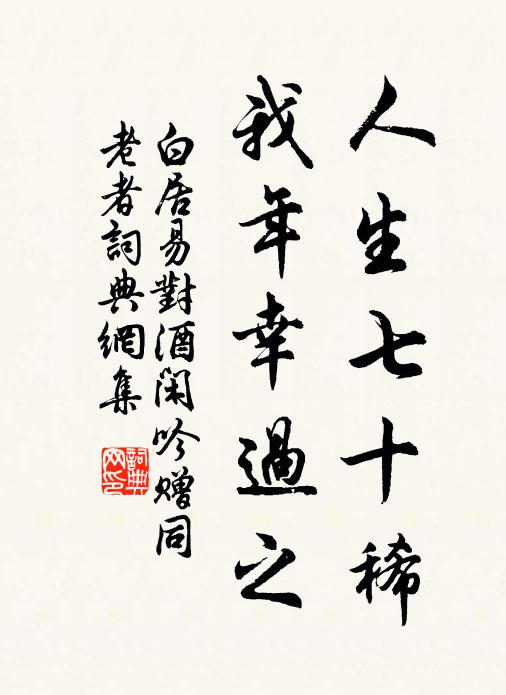 人生七十稀
我年幸過之
白居易對酒閑吟贈同
老者詞典網集
詞典网印